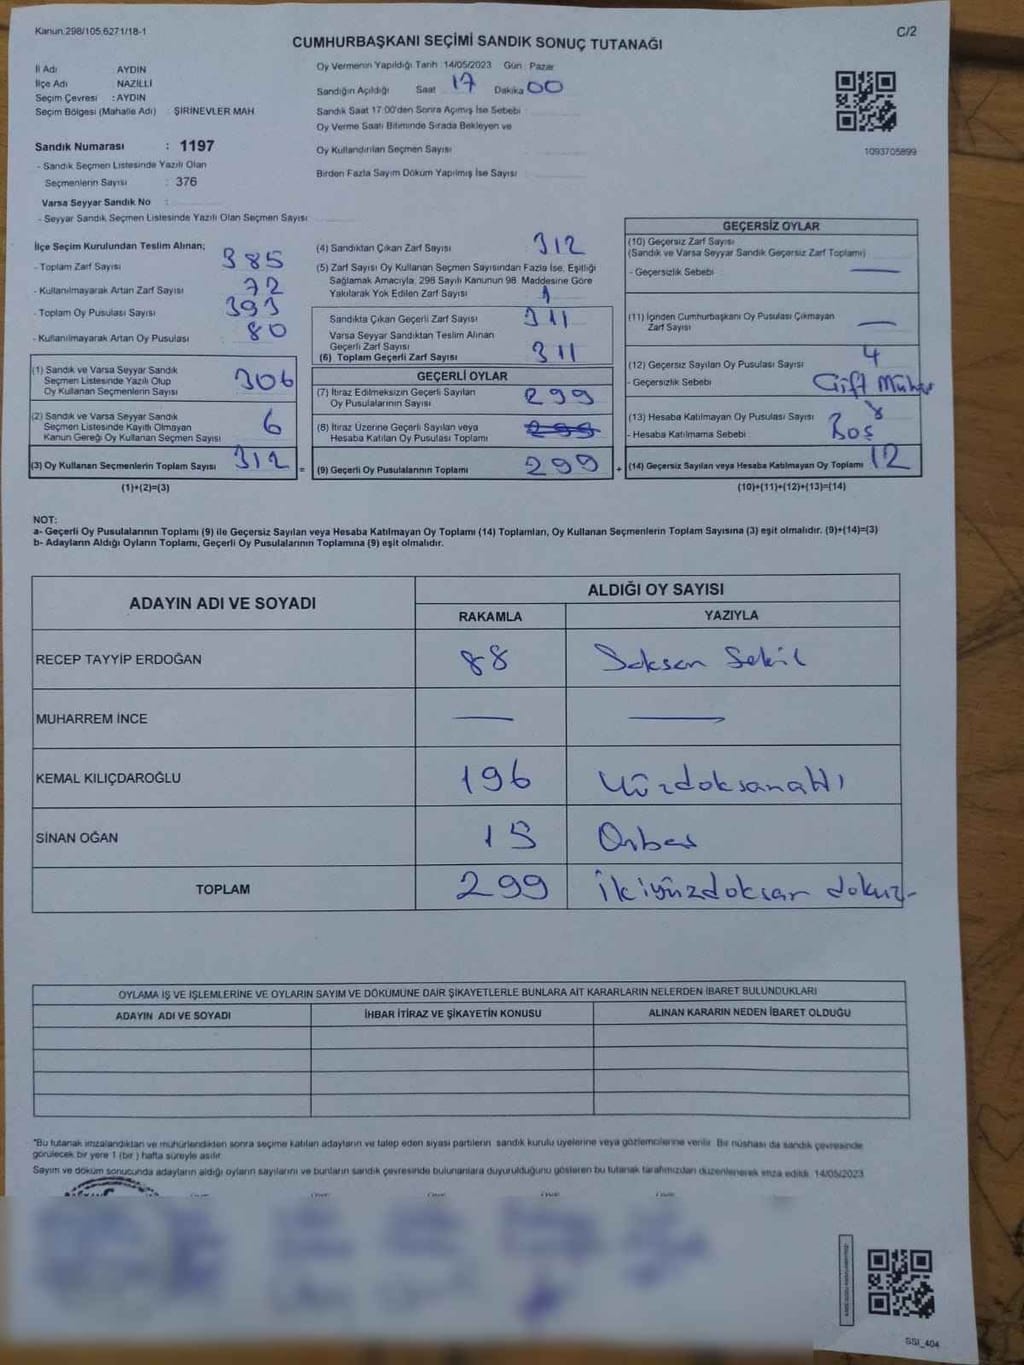 Kanun:298/105,6271/18-1
C/2
CUMHURBAŞKANI SEÇİMİ SANDIK SONUÇ TUTANAĞI
İl Adı AYDIN
İlçe Adı NAZİLLİ
Seçim Çevresi : AYDIN
Seçim Bölgesi (Mahalle Adı) : ŞİRİNEVLER MAH
Sandık Numarası : 1197
- Sandık Seçmen Listesinde Yazılı Olan
Seçmenlerin Sayısı : 376
Varsa Seyyar Sandık No :
- Seyyar Sandık Seçmen Listesinde Yazılı Olan Seçmen Sayısı
Oy Vermenin Yapıldığı Tarih 14/05/2023 Gün : Pazar
Sandığın Açıldığı Saat 17 Dakika 00
Sandık Saat 17:00'den Sonra Açılmış İse Sebebi
Oy Verme Saati Bitiminde Sırada Bekleyen ve
Oy Kullandırılan Seçmen Sayısı
Birden Fazla Sayım Döküm Yapılmış İse Sayısı
1093705899
İlçe Seçim Kurulundan Teslim Alınan;
- Toplam Zarf Sayısı 385
- Kullanılmayarak Artan Zarf Sayısı 72
- Toplam Oy Pusulası Sayısı 393
- Kullanılmayarak Artan Oy Pusulası 80
(1) Sandık ve Varsa Seyyar Sandık
Seçmen Listesinde Yazılı Olup
Oy Kullanan Seçmenlerin Sayısı 306
(2) Sandık ve Varsa Seyyar Sandık
Seçmen Listesinde Kayıtlı Olmayan
Kanun Gereği Oy Kullanan Seçmen Sayısı 6
(3) Oy Kullanan Seçmenlerin Toplam Sayısı 312 =
(1)+(2)=(3)
(4) Sandıktan Çıkan Zarf Sayısı 312
(5) Zarf Sayısı Oy Kullanan Seçmen Sayısından Fazla İse, Eşitliği
Sağlamak Amacıyla, 298 Sayılı Kanunun 98. Maddesine Göre
Yakılarak Yok Edilen Zarf Sayısı 1
Sandıkta Çıkan Geçerli Zarf Sayısı 311
Varsa Seyyar Sandıktan Teslim Alınan
Geçerli Zarf Sayısı
(6) Toplam Geçerli Zarf Sayısı 311
GEÇERLİ OYLAR
(7) İtiraz Edilmeksizin Geçerli Sayılan
Oy Pusulalarının Sayısı 299
(8) İtiraz Üzerine Geçerli Sayılan veya
Hesaba Katılan Oy Pusulası Toplamı
(9) Geçerli Oy Pusulalarının Toplamı 299 +
GEÇERSİZ OYLAR
(10) Geçersiz Zarf Sayısı
(Sandık ve Varsa Seyyar Sandık Geçersiz Zarf Toplamı)
- Geçersizlik Sebebi —
(11) İçinden Cumhurbaşkanı Oy Pusulası Çıkmayan
Zarf Sayısı —
(12) Geçersiz Sayılan Oy Pusulası Sayısı 4
- Geçersizlik Sebebi Çift Mühür
(13) Hesaba Katılmayan Oy Pusulası Sayısı 8
- Hesaba Katılmama Sebebi Boş
(14) Geçersiz Sayılan veya Hesaba Katılmayan Oy Toplamı 12
(10)+(11)+(12)+(13)=(14)
NOT:
a- Geçerli Oy Pusulalarının Toplamı (9) ile Geçersiz Sayılan veya Hesaba Katılmayan Oy Toplamı (14) Toplamları, Oy Kullanan Seçmenlerin Toplam Sayısına (3) eşit olmalıdır. (9)+(14)=(3)
b- Adayların Aldığı Oyların Toplamı, Geçerli Oy Pusulalarının Toplamına (9) eşit olmalıdır.
ADAYIN ADI VE SOYADI ALDIĞI OY SAYISI
RAKAMLA YAZIYLA
RECEP TAYYİP ERDOĞAN 88 Seksen Sekiz
MUHARREM İNCE — —
KEMAL KILIÇDAROĞLU 196 Yüzdoksanaltı
SİNAN OĞAN 15 Onbeş
TOPLAM 299 İkiyüzdoksan dokuz
OYLAMA İŞ VE İŞLEMLERİNE VE OYLARIN SAYIM VE DÖKÜMÜNE DAİR ŞİKAYETLERLE BUNLARA AİT KARARLARIN NELERDEN İBARET BULUNDUKLARI
ADAYIN ADI VE SOYADI İHBAR İTİRAZ VE ŞİKAYETİN KONUSU ALINAN KARARIN NEDEN İBARET OLDUĞU
*Bu tutanak imzalandıktan ve mühürlendikten sonra seçime katılan adayların ve talep eden siyasi partilerin sandık kurulu üyelerine veya gözlemcilerine verilir. Bir nüshası da sandık çevresinde
görülecek bir yere 1 (bir) hafta süreyle asılır.
Sayım ve döküm sonucunda adayların aldığı oyların sayılarını ve bunların sandık çevresinde bulunanlara duyurulduğunu gösteren bu tutanak tarafımızdan düzenlenerek imza edildi. 14/05/2023
SSI_404